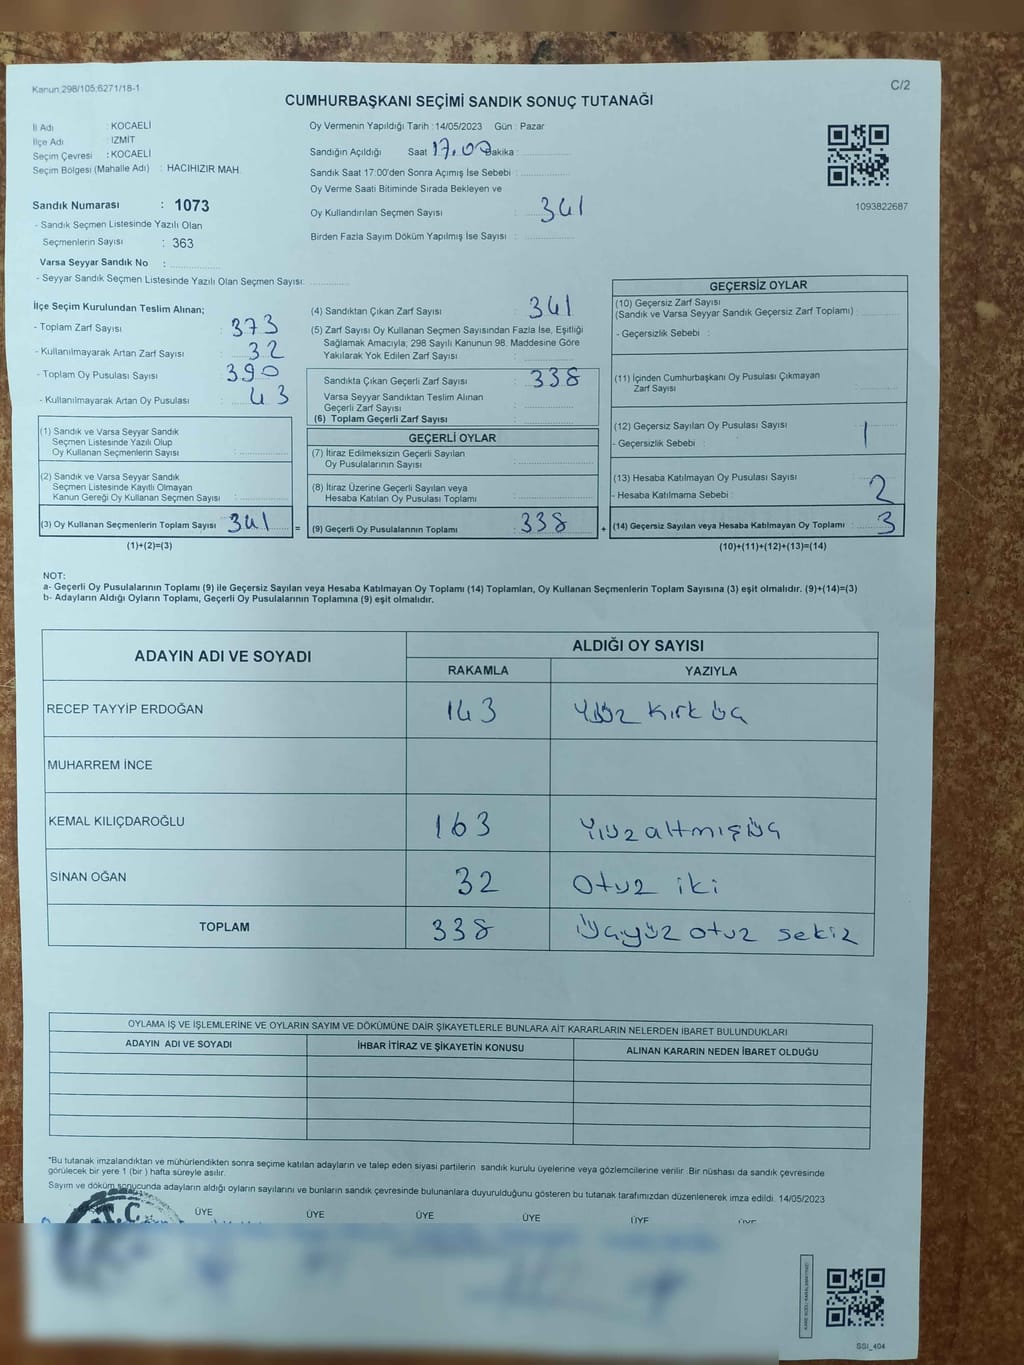 Kanun 298/105;6271/18-1
C/2
CUMHURBAŞKANI SEÇİMİ SANDIK SONUÇ TUTANAĞI
İl Adı : KOCAELİ
İlçe Adı : İZMİT
Seçim Çevresi : KOCAELİ
Seçim Bölgesi (Mahalle Adı) : HACIHIZIR MAH.
Oy Vermenin Yapıldığı Tarih :14/05/2023 Gün : Pazar
Sandığın Açıldığı Saat 17.00 Dakika :
Sandık Saat 17:00'den Sonra Açımış İse Sebebi :
Oy Verme Saati Bitiminde Sırada Bekleyen ve
Oy Kullandırılan Seçmen Sayısı : 341
Birden Fazla Sayım Döküm Yapılmış İse Sayısı :
1093822687
Sandık Numarası : 1073
- Sandık Seçmen Listesinde Yazılı Olan
Seçmenlerin Sayısı : 363
Varsa Seyyar Sandık No :
- Seyyar Sandık Seçmen Listesinde Yazılı Olan Seçmen Sayısı:
İlçe Seçim Kurulundan Teslim Alınan;
- Toplam Zarf Sayısı : 373
- Kullanılmayarak Artan Zarf Sayısı : 32
- Toplam Oy Pusulası Sayısı : 390
- Kullanılmayarak Artan Oy Pusulası : 43
(1) Sandık ve Varsa Seyyar Sandık
Seçmen Listesinde Yazılı Olup
Oy Kullanan Seçmenlerin Sayısı :
(2) Sandık ve Varsa Seyyar Sandık
Seçmen Listesinde Kayıtlı Olmayan
Kanun Gereği Oy Kullanan Seçmen Sayısı :
(3) Oy Kullanan Seçmenlerin Toplam Sayısı : 341 =
(1)+(2)=(3)
(4) Sandıktan Çıkan Zarf Sayısı : 341
(5) Zarf Sayısı Oy Kullanan Seçmen Sayısından Fazla İse, Eşitliği
Sağlamak Amacıyla; 298 Sayılı Kanunun 98. Maddesine Göre
Yakılarak Yok Edilen Zarf Sayısı :
Sandıkta Çıkan Geçerli Zarf Sayısı : 338
Varsa Seyyar Sandıktan Teslim Alınan
Geçerli Zarf Sayısı :
(6) Toplam Geçerli Zarf Sayısı :
GEÇERLİ OYLAR
(7) İtiraz Edilmeksizin Geçerli Sayılan
Oy Pusulalarının Sayısı :
(8) İtiraz Üzerine Geçerli Sayılan veya
Hesaba Katılan Oy Pusulası Toplamı :
(9) Geçerli Oy Pusulalarının Toplamı : 338 +
GEÇERSİZ OYLAR
(10) Geçersiz Zarf Sayısı
(Sandık ve Varsa Seyyar Sandık Geçersiz Zarf Toplamı) :
- Geçersizlik Sebebi :
(11) İçinden Cumhurbaşkanı Oy Pusulası Çıkmayan
Zarf Sayısı :
(12) Geçersiz Sayılan Oy Pusulası Sayısı : 1
- Geçersizlik Sebebi :
(13) Hesaba Katılmayan Oy Pusulası Sayısı : 2
- Hesaba Katılmama Sebebi :
(14) Geçersiz Sayılan veya Hesaba Katılmayan Oy Toplamı : 3
(10)+(11)+(12)+(13)=(14)
NOT:
a- Geçerli Oy Pusulalarının Toplamı (9) ile Geçersiz Sayılan veya Hesaba Katılmayan Oy Toplamı (14) Toplamları, Oy Kullanan Seçmenlerin Toplam Sayısına (3) eşit olmalıdır. (9)+(14)=(3)
b- Adayların Aldığı Oyların Toplamı, Geçerli Oy Pusulalarının Toplamına (9) eşit olmalıdır.
ADAYIN ADI VE SOYADI
ALDIĞI OY SAYISI
RAKAMLA YAZIYLA
RECEP TAYYİP ERDOĞAN 143 Yüz kırk üç
MUHARREM İNCE
KEMAL KILIÇDAROĞLU 163 Yüz altmış üç
SİNAN OĞAN 32 Otuz iki
TOPLAM 338 Üçyüz otuz sekiz
OYLAMA İŞ VE İŞLEMLERİNE VE OYLARIN SAYIM VE DÖKÜMÜNE DAİR ŞİKAYETLERLE BUNLARA AİT KARARLARIN NELERDEN İBARET BULUNDUKLARI
ADAYIN ADI VE SOYADI İHBAR İTİRAZ VE ŞİKAYETİN KONUSU ALINAN KARARIN NEDEN İBARET OLDUĞU
*Bu tutanak imzalandıktan ve mühürlendikten sonra seçime katılan adayların ve talep eden siyasi partilerin sandık kurulu üyelerine veya gözlemcilerine verilir. Bir nüshası da sandık çevresinde
görülecek bir yere 1 (bir ) hafta süreyle asılır.
Sayım ve döküm sonucunda adayların aldığı oyların sayılarını ve bunların sandık çevresinde bulunanlara duyurulduğunu gösteren bu tutanak tarafımızdan düzenlenerek imza edildi. 14/05/2023
ÜYE ÜYE ÜYE ÜYE ÜYE ÜYE
T.C.
SSI_404